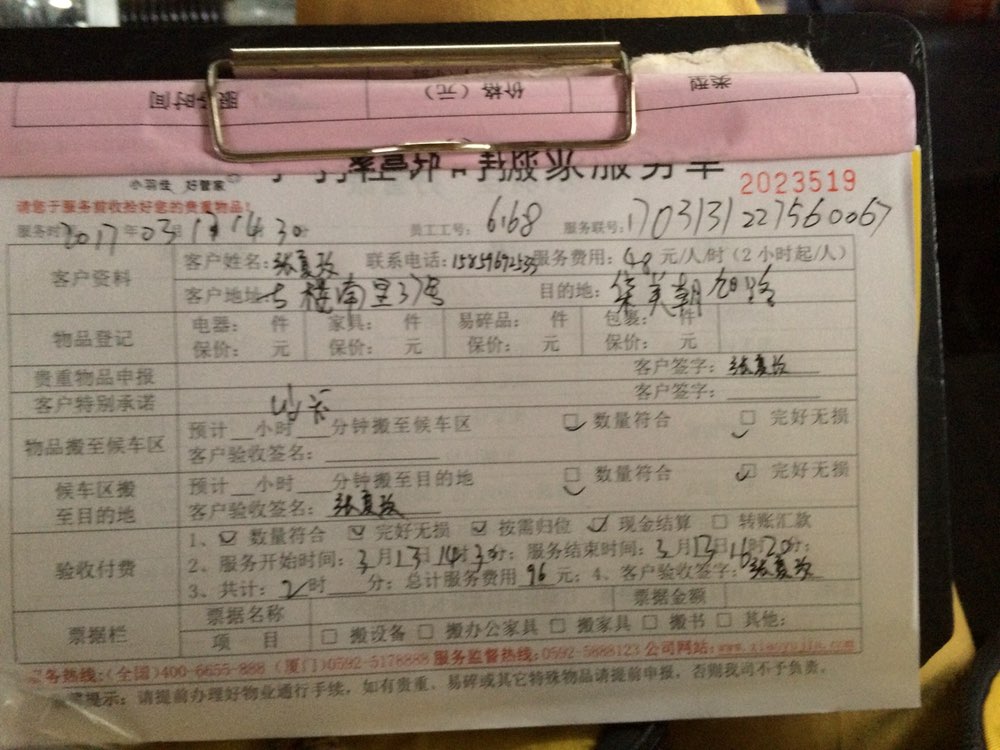 服务时间
价格（元）
类型
搬家服务单
小羽佳 好管家
2023519
请您于服务前收拾好您的贵重物品！
服务时 2017年03月13 14 30分 员工工号：6168 服务联号：170313122756006７
客户资料 客户姓名：张夏 联系电话： 服务费用：48元/人/时（2小时起/人）
客户地址 南里37号 目的地：集美朝旭路
物品登记 电器： 件 家具： 件 易碎品： 件 包裹： 件
保价： 元 保价： 元 保价： 元 保价： 元
贵重物品申报 客户签字：张夏
客户特别承诺 客户签字：
物品搬至候车区 预计 小时 分钟搬至候车区 数量符合 完好无损
客户验收签名：
候车区搬至目的地 预计 小时 分钟搬至目的地 数量符合 完好无损
客户验收签名：张夏
验收付费 1、 数量符合 完好无损 按需归位 现金结算 转账汇款
2、服务开始时间：3月13日14时30分；服务结束时间：3月13日16时20分；
3、共计：2时 分；总计服务费用96元；4、客户验收签字：张夏
票据栏 票据名称 票据金额
项 目 搬设备 搬办公家具 搬家具 搬书 其他：
服务热线：（全国）400-6655-888（厦门）0592-5178888 服务监督热线：0592-5888123 公司网站：www.xiaoyujia.com
提示：请提前办理好物业通行手续，如有贵重、易碎或其它特殊物品请提前申报，否则我司不予负责。